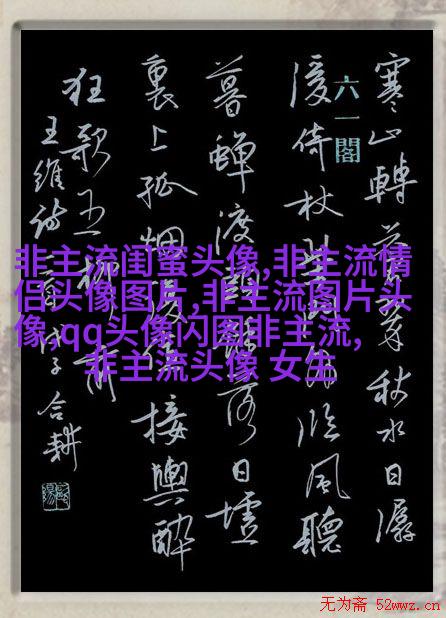 寒山轉蒼翠秋水日潺
六一閣
湲倚杖柴門外臨風聽
暮蟬渡頭餘落日墟
裏上孤烟復值接輿醉
狂歌五柳前
王維詩
合耕
非主流闺蜜头像,非主流情
侣头像图片,非主流图片头
像,qq头像闪图非主流,
非主流头像 女生
无为斋 52wwz.cn